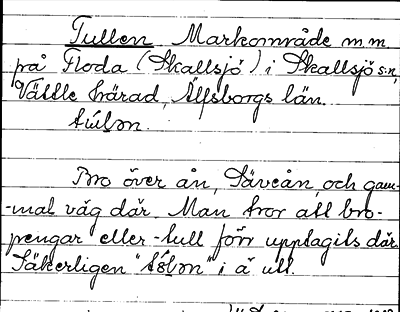 Tullen Markområde m.m.
på Floda (Skallsjö) i Skallsjö s:n,
Vättle härad, Älfsborgs län.
Bro över ån, Säveån, och gam-
-mal väg där. Man tror att bro-
pengar eller -tull förr upptagits där.
Säkerligen i ä ull.